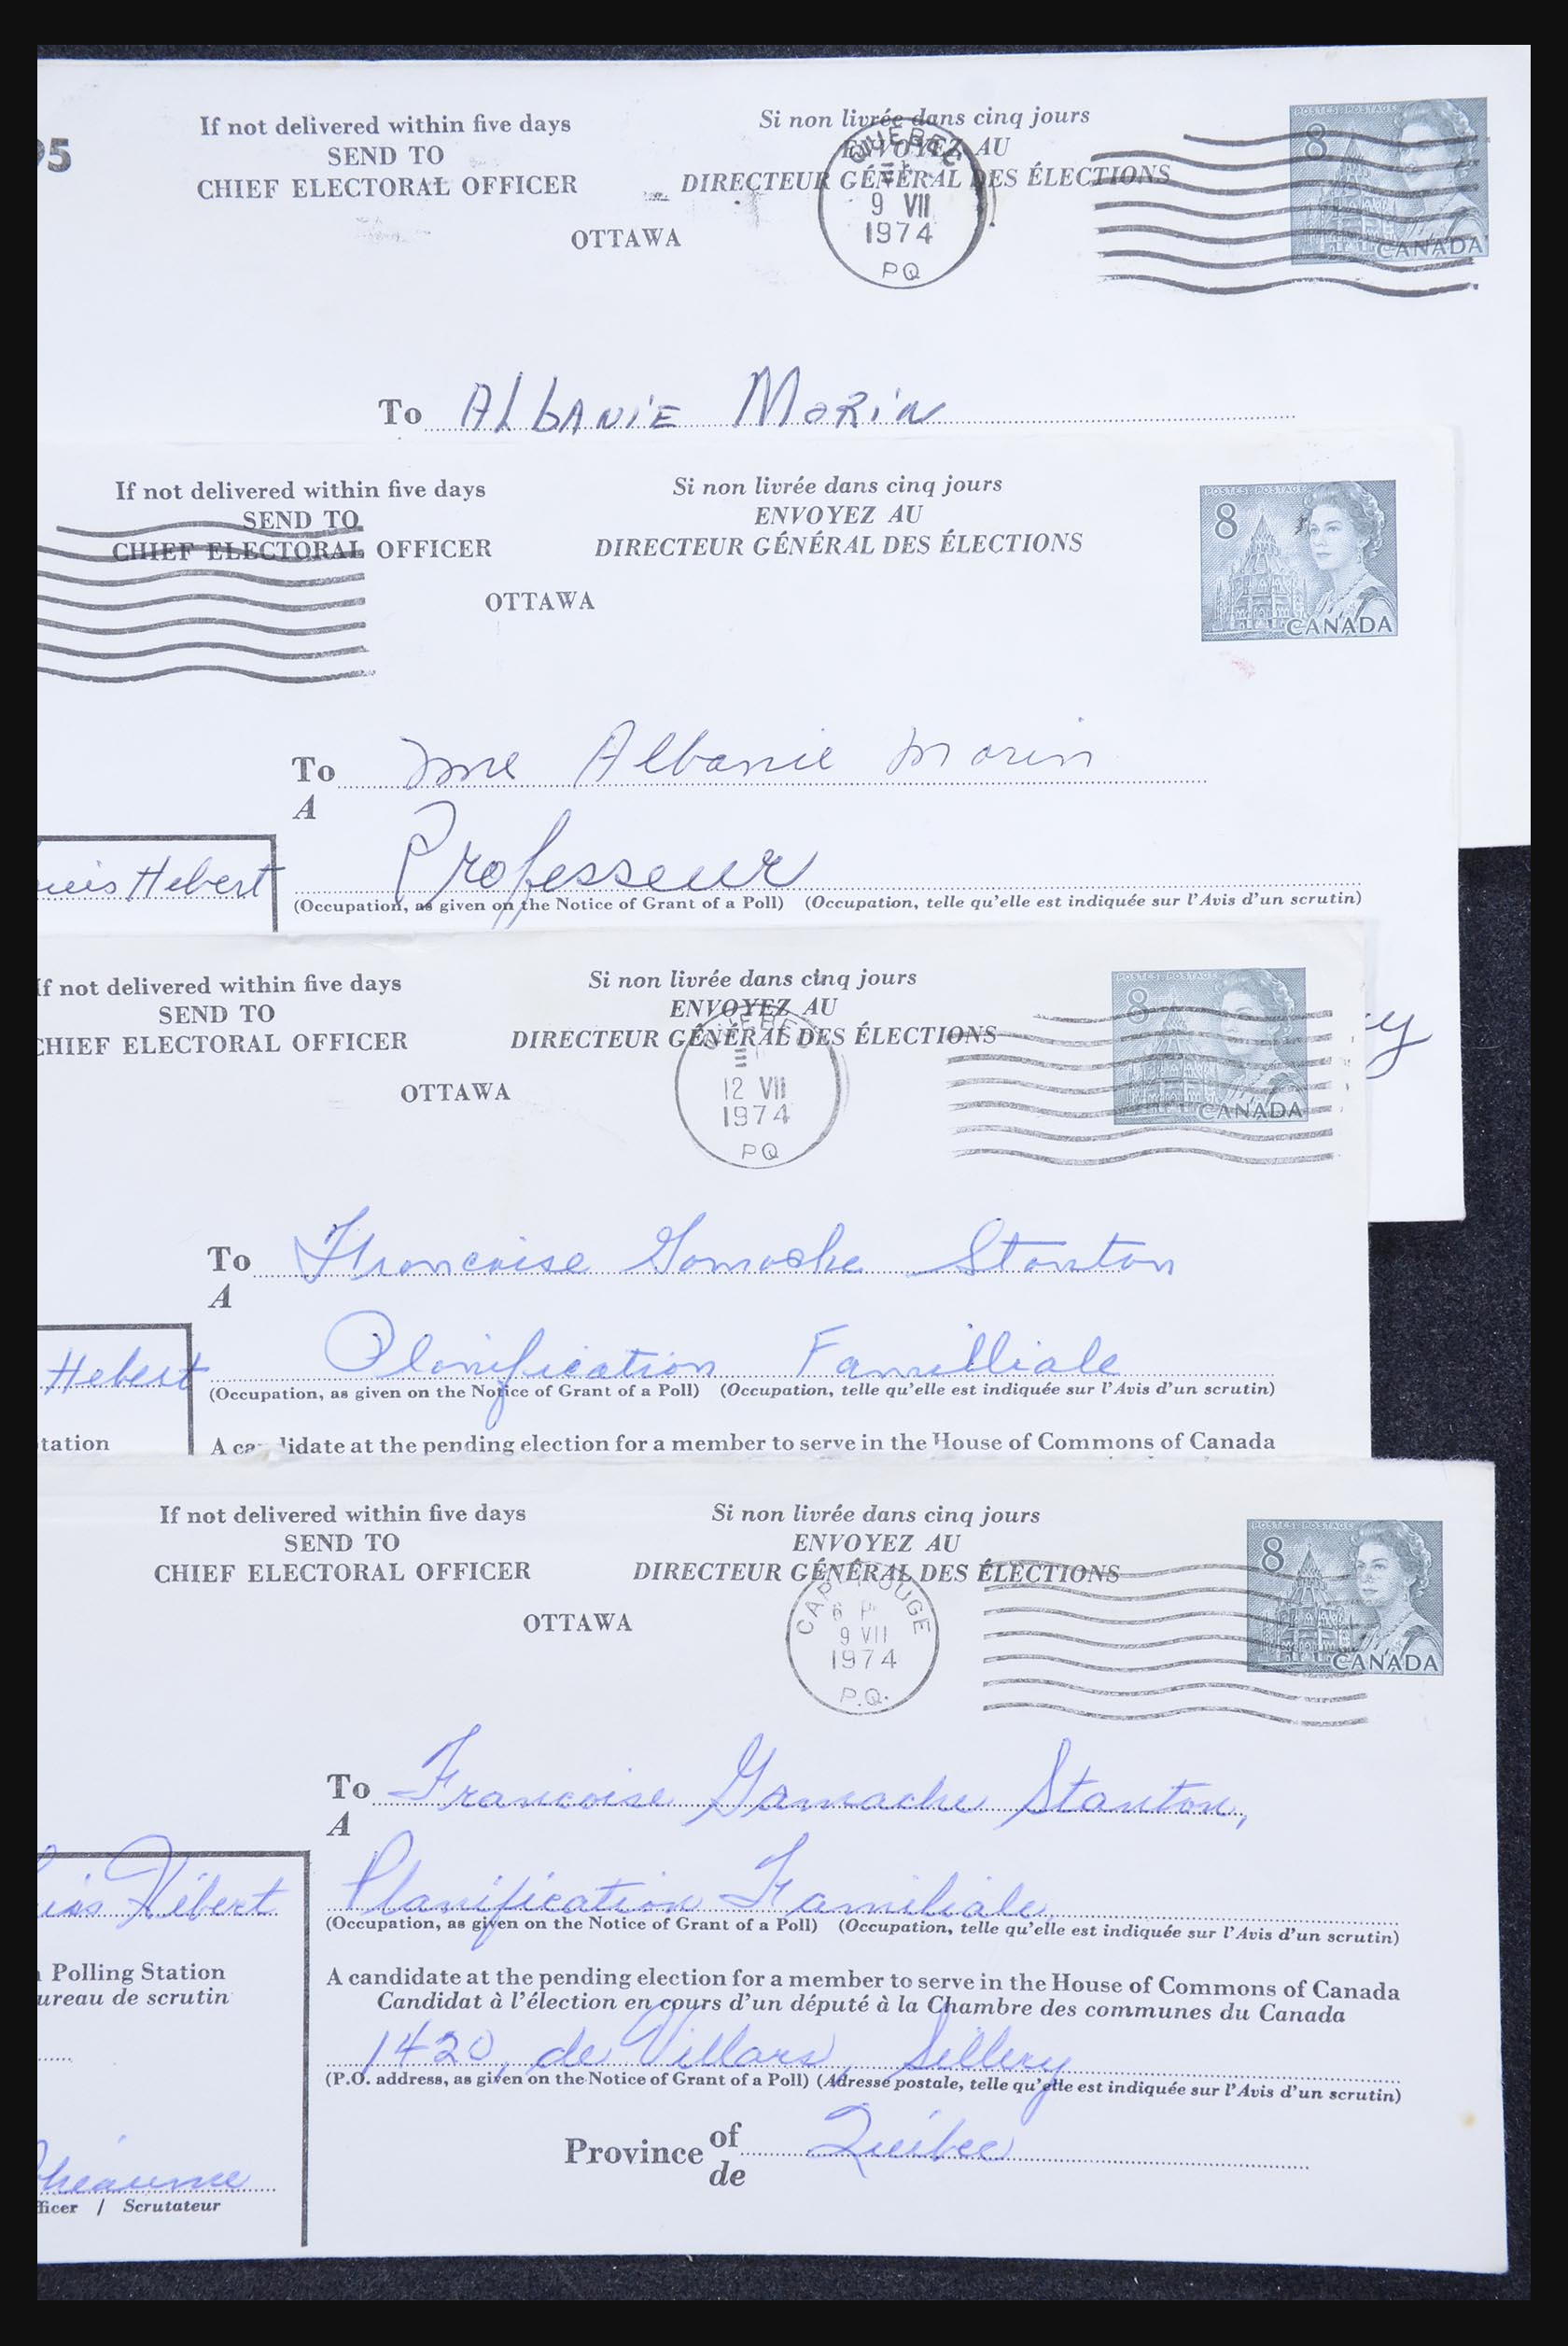 95
If not delivered within five days
SEND TO
CHIEF ELECTORAL OFFICER
Si non livrée dans cinq jours
ENVOYEZ AU
DIRECTEUR GÉNÉRAL DES ÉLECTIONS
OTTAWA
QUEBEC
9 VII
1974
PQ
POSTES POSTAGE
8
CANADA
To Albanie Morin
If not delivered within five days
SEND TO
CHIEF ELECTORAL OFFICER
Si non livrée dans cinq jours
ENVOYEZ AU
DIRECTEUR GÉNÉRAL DES ÉLECTIONS
OTTAWA
POSTES POSTAGE
8
CANADA
To Mme Albanie Morin
A
Hebert
Professeur
(Occupation, as given on the Notice of Grant of a Poll) (Occupation, telle qu'elle est indiquée sur l'Avis d'un scrutin)
If not delivered within five days
SEND TO
CHIEF ELECTORAL OFFICER
Si non livrée dans cinq jours
ENVOYEZ AU
DIRECTEUR GÉNÉRAL DES ÉLECTIONS
OTTAWA
QUEBEC
12 VII
1974
PQ
POSTES POSTAGE
8
CANADA
To Francoise Gamache Stanton
A
Hebert
Planification Familliale
(Occupation, as given on the Notice of Grant of a Poll) (Occupation, telle qu'elle est indiquée sur l'Avis d'un scrutin)
tation
A candidate at the pending election for a member to serve in the House of Commons of Canada
If not delivered within five days
SEND TO
CHIEF ELECTORAL OFFICER
Si non livrée dans cinq jours
ENVOYEZ AU
DIRECTEUR GÉNÉRAL DES ÉLECTIONS
OTTAWA
CAP ROUGE
6 P
9 VII
1974
P.Q.
POSTES POSTAGE
8
CANADA
To Francoise Gamache Stanton,
A
Hébert
Planification Familiale
(Occupation, as given on the Notice of Grant of a Poll) (Occupation, telle qu'elle est indiquée sur l'Avis d'un scrutin)
Polling Station
ureau de scrutin
A candidate at the pending election for a member to serve in the House of Commons of Canada
Candidat à l'élection en cours d'un député à la Chambre des communes du Canada
1420, de Villars, Sillery
(P.O. address, as given on the Notice of Grant of a Poll) (Adresse postale, telle qu'elle est indiquée sur l'Avis d'un scrutin)
Province of Québec
de
héaume
ficer / Scrutateur